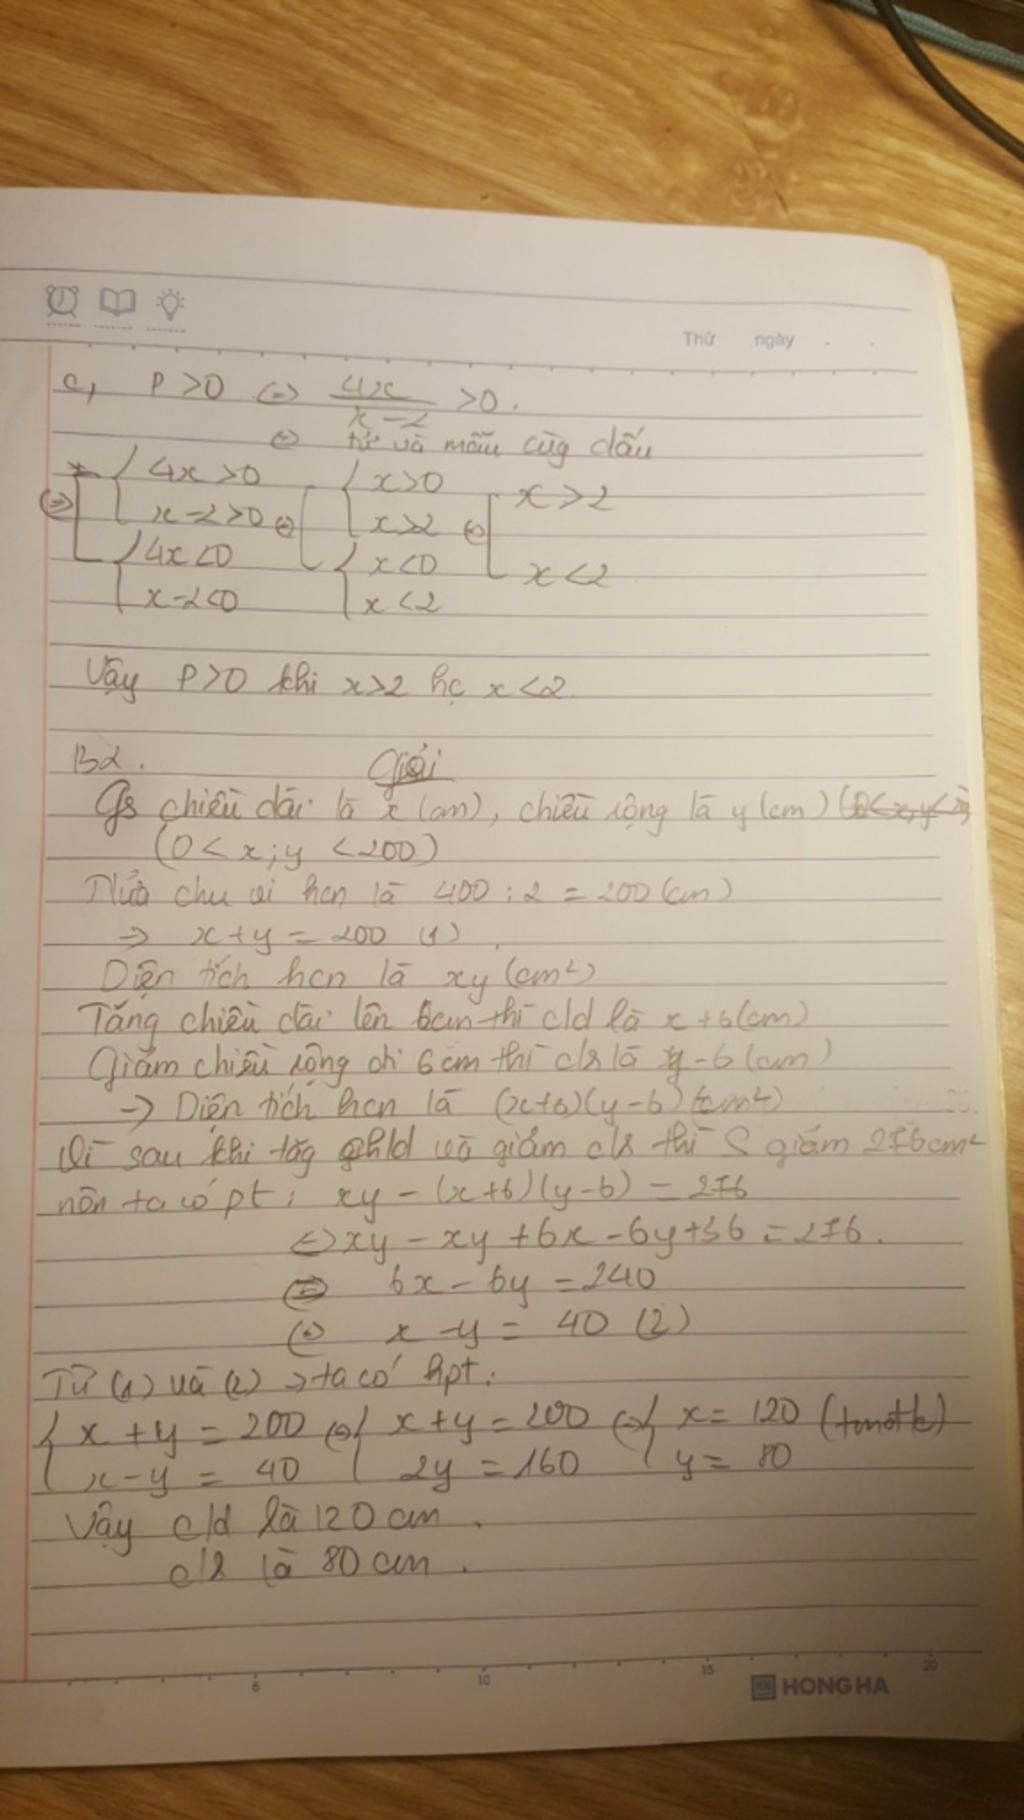 Thứ ngày
c, P>0 (=) 4x/x-2 >0.
(=) tử và mẫu cùg dấu
(=) [ { 4x>0 x-2>0 { 4x<0 x-2<0 (=) [ { x>0 x>2 { x<0 x<2 (=) [ x>2 x<2
Vậy P>0 khi x>2 hc x<2.
B2. Giải
Gs chiều dài là x (cm), chiều rộng là y (cm)
(0<x;y<200)
Nửa chu vi hcn là 400:2=200(cm)
=> x+y=200 (1)
Diện tích hcn là xy (cm²)
Tăng chiều dài lên 6cm thì c/d là x+6(cm)
Giảm chiều rộng đi 6cm thì c/r là y-6(cm)
-> Diện tích hcn là (x+6)(y-6)(cm²)
Vì sau khi tăg c/d và giảm c/r thì S giảm 276cm²
nên ta có pt: xy-(x+6)(y-6)=276
<=> xy-xy+6x-6y+36=276.
(=) 6x-6y=240
(=) x-y=40 (2)
Từ (1) và (2) => ta có hpt:
{ x+y=200 x-y=40 (=) { x+y=200 2y=160 (=) { x=120 (tmđk) y=80
Vậy c/d là 120cm.
c/r là 80cm.
5 10 15 20
HONG HA